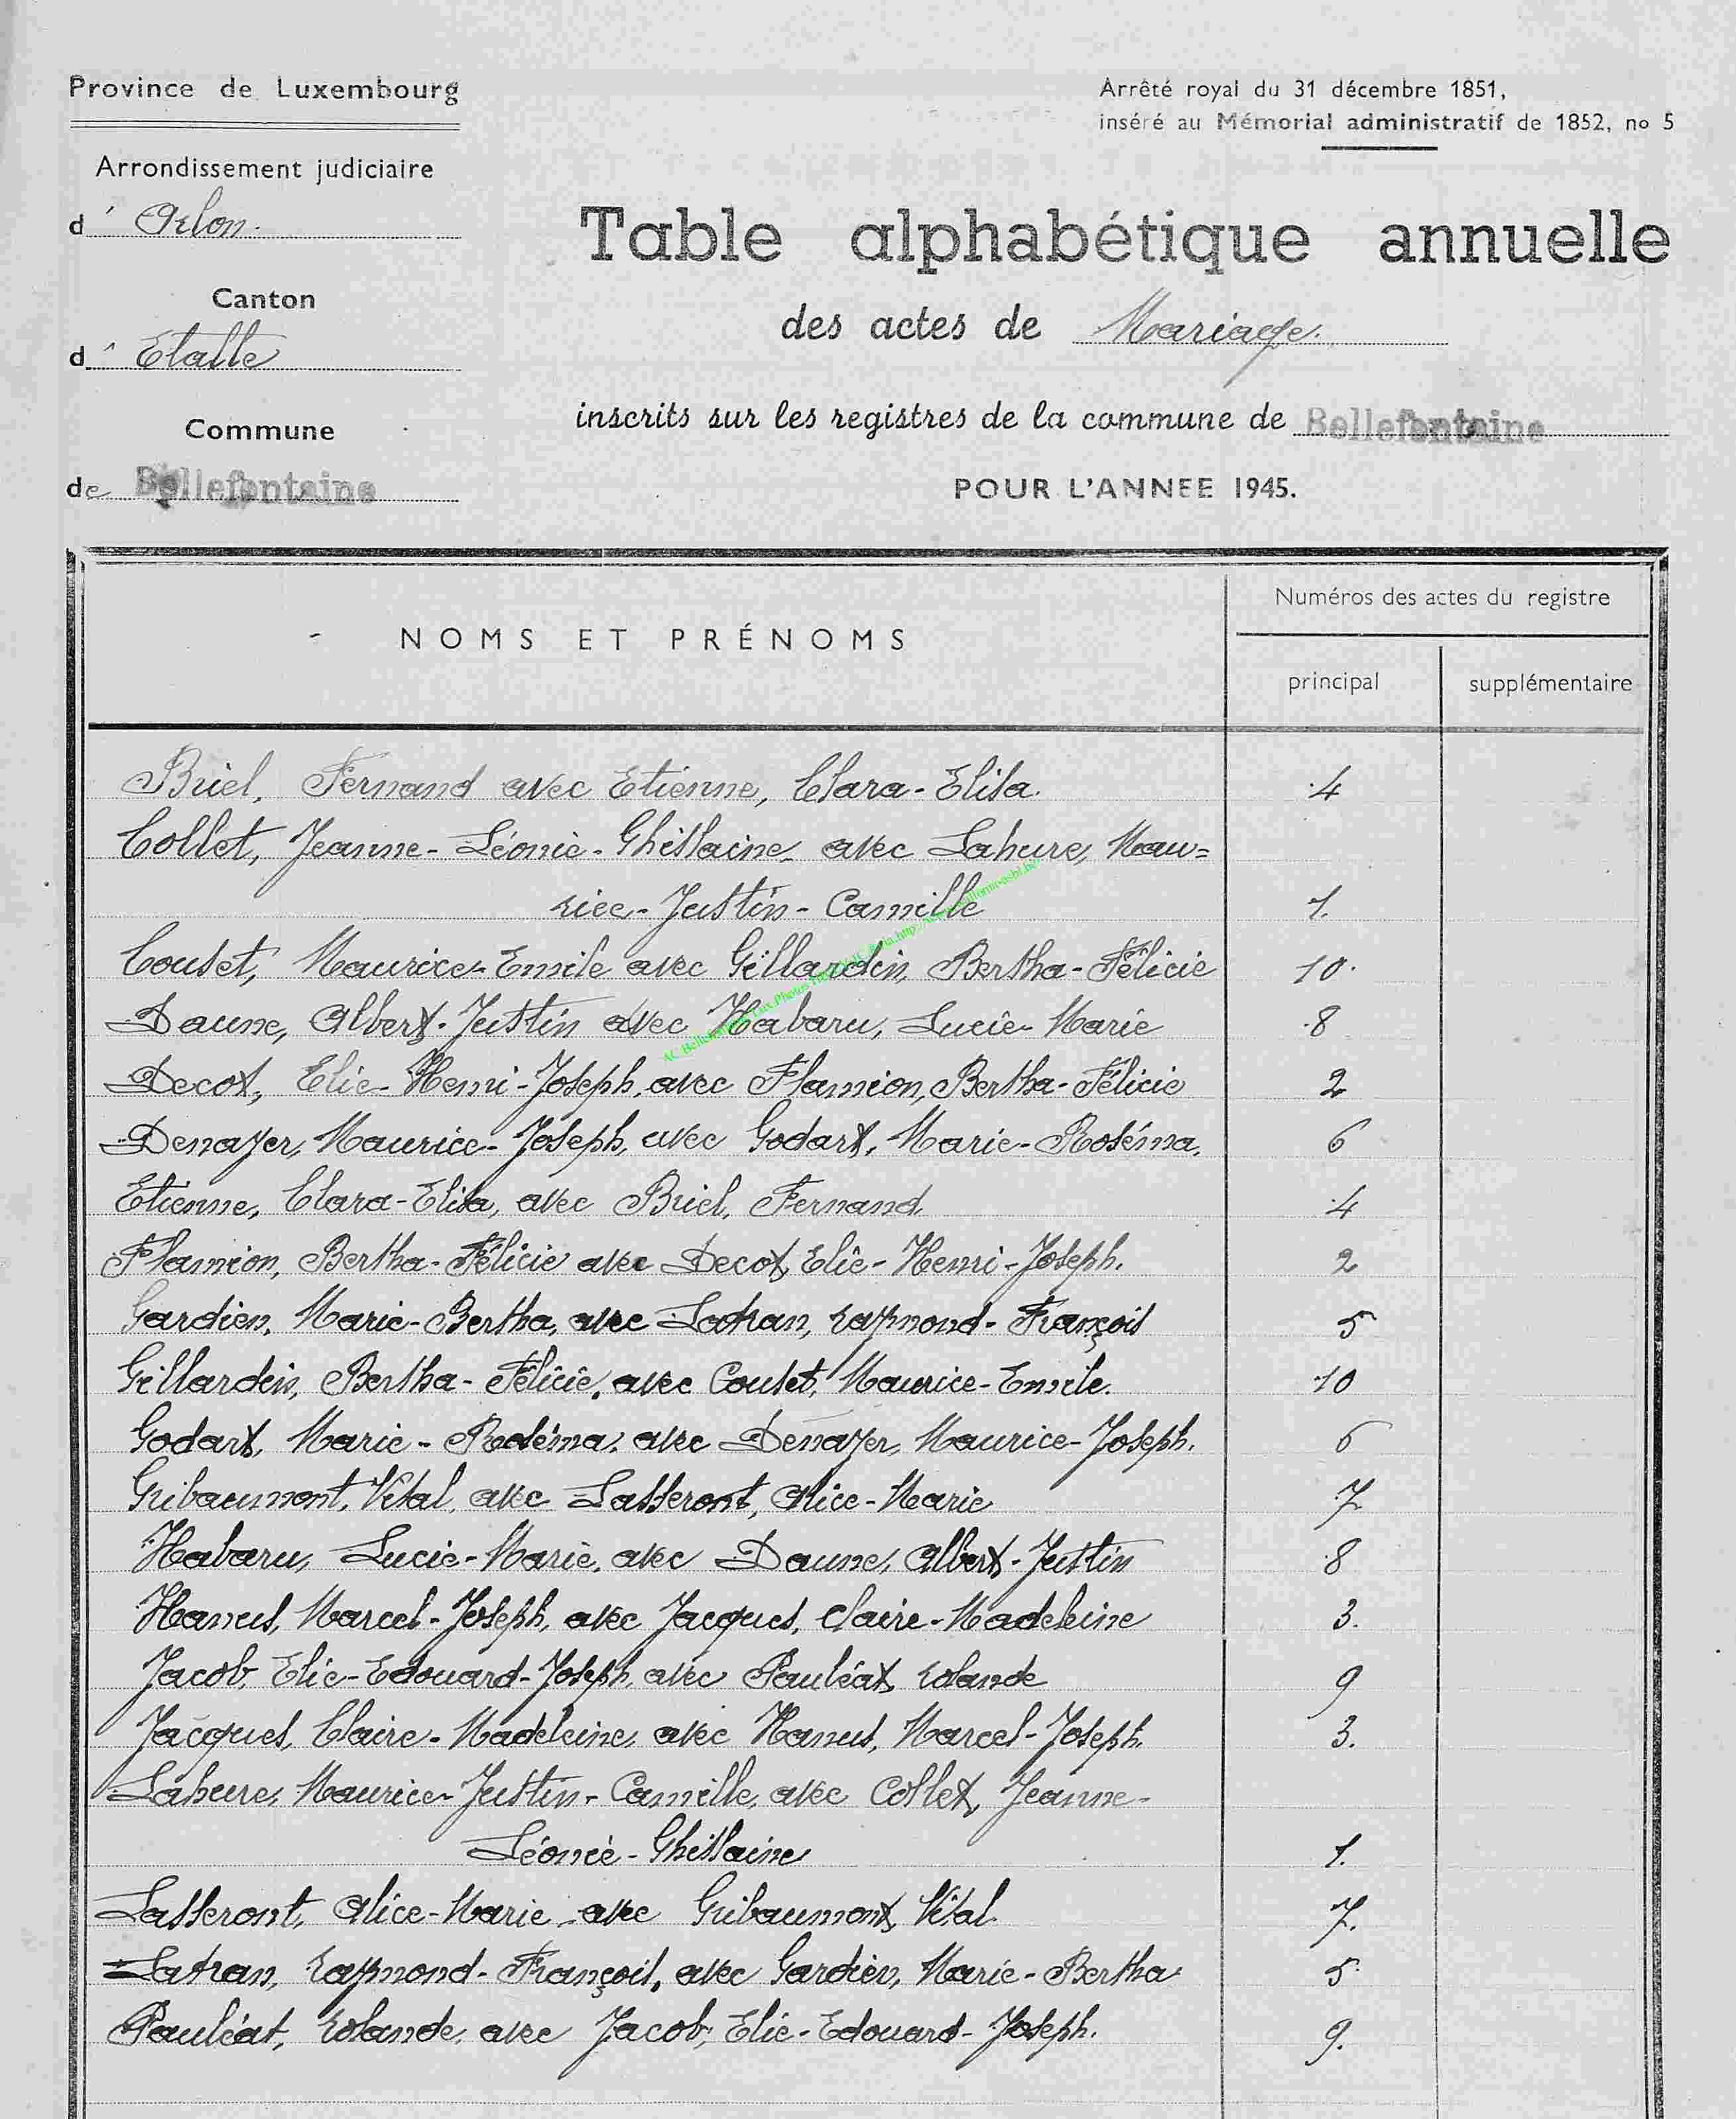 Province de Luxembourg
Arrêté royal du 31 décembre 1851,
inséré au Mémorial administratif de 1852, no 5
Arrondissement judiciaire
d' Arlon.
Table alphabétique annuelle
Canton
des actes de Mariage.
d' Etalle
inscrits sur les registres de la commune de Bellefontaine
Commune
de Bellefontaine
POUR L'ANNEE 1945.
NOMS ET PRÉNOMS
Numéros des actes du registre
principal supplémentaire
Briel, Fernand avec Etienne, Clara-Elisa. 4
Collet, Jeanne-Léonie-Ghislaine avec Lahure, Mau=
rice-Justin-Camille 1.
Couset, Maurice-Emile avec Gillardin, Bertha-Félicie 10.
Daune, Albert-Justin avec Habaru, Lucie-Marie 8
Decot, Elie-Henri-Joseph, avec Flamion, Bertha-Félicie 2
Denayer, Maurice-Joseph, avec Godart, Marie-Roséma. 6
Etienne, Clara-Elisa, avec Briel, Fernand. 4
Flamion, Bertha-Félicie avec Decot, Elie-Henri-Joseph. 2
Gardien, Marie-Bertha, avec Latran, raymond-François 5
Gillardin, Bertha-Félicie, avec Couset, Maurice-Emile. 10
Godart, Marie-Roséma, avec Denayer, Maurice-Joseph. 6
Gribaumont, Vital, avec Lasseront, Alice-Marie 7
Habaru, Lucie-Marie, avec Daune, Albert-Justin 8
Hanus, Marcel-Joseph, avec Jacques, Claire-Madeleine 3.
Jacob, Elie-Edouard-Joseph, avec Pauléat, rolande 9
Jacques, Claire-Madeleine, avec Hanus, Marcel-Joseph. 3.
Lahure, Maurice-Justin-Camille, avec Collet, Jeanne-
Léonie-Ghislaine 1.
Lasseront, Alice-Marie avec Gribaumont, Vital. 7.
Latran, raymond-François, avec Gardien, Marie-Bertha 5
Pauléat, rolande, avec Jacob, Elie-Edouard-Joseph. 9.